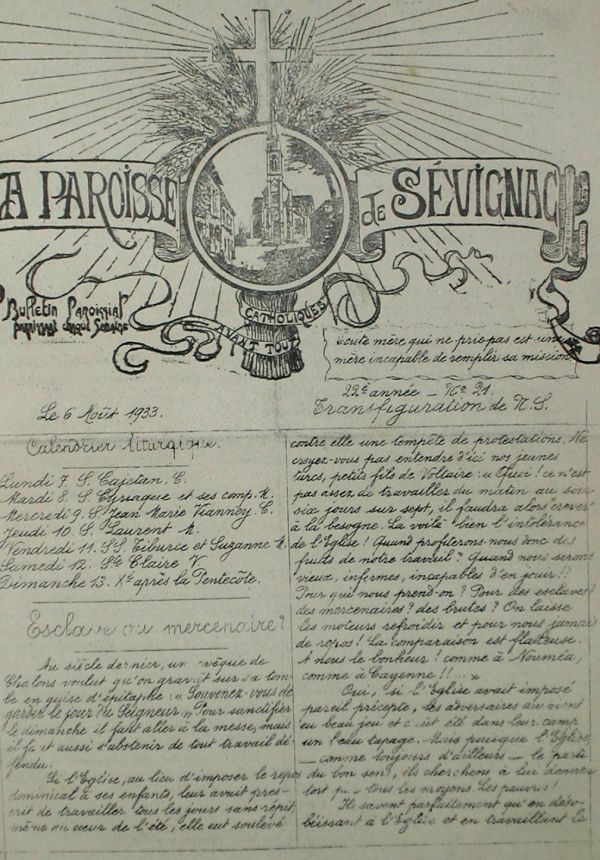 A PAROISSE DE SÉVIGNAC
Bulletin Paroissial
paraissant chaque Semaine
CATHOLIQUES
AVANT TOUT
Toute mère qui ne prie pas est une
mère incapable de remplir sa mission
22e année _ No 21.
Le 6 Août 1933.
Transfiguration de N. S.
Calendrier liturgique.
Lundi 7. S. Cajetan. C.
Mardi 8. S. Cyriaque et ses comp. M.
Mercredi 9. S. Jean Marie Vianney. C.
Jeudi 10. S. Laurent M.
Vendredi 11. SS. Tiburce et Suzanne M.
Samedi 12. Ste Claire V.
Dimanche 13. Xe après la Pentecôte.
Esclave ou mercenaire?
Au siècle dernier, un évêque de
Chalons voulut qu'on gravât sur sa tom-
be en guise d'épitaphe : « Souvenez-vous de
garder le jour du Seigneur » Pour sanctifier
le dimanche il faut aller à la messe, mais
il faut aussi s'abstenir de tout travail dé-
fendu.
Si l'Eglise, au lieu d'imposer le repos
dominical à ses enfants, leur avait pres-
crit de travailler tous les jours sans répit
même au cœur de l'été, elle eut soulevé
contre elle une tempête de protestations. Ne
croyez-vous pas entendre d'ici nos jeunes
turcs, petits fils de Voltaire : « Quoi ! ce n'est
pas assez de travailler du matin au soir
six jours sur sept, il faudra alors crever
à la besogne. La voilà bien l'intolérance
de l'Eglise ! Quand profiterons-nous donc des
fruits de notre travail ? Quand nous serons
vieux, infirmes, incapables d'en jouir !?
Pour qui nous prend-on ? Pour des esclaves?
des mercenaires ? des brutes ? On laisse
les moteurs refroidir et pour nous jamais
de repos ! La comparaison est flatteuse.
A nous le bonheur ! comme à Nouméa,
comme à Cayenne !! ... »
Oui, si l'Eglise avait imposé
pareil précepte, les adversaires auraient
eu beau jeu et c'eût été dans leur camp
un beau tapage. Mais puisque l'Eglise
_ comme toujours d'ailleurs _ le parti
du bon sens, ils cherchent à lui donner
tort par tous les moyens. Les pauvres !
Ils savent parfaitement qu'en déso-
béissant à l'Eglise et en travaillant le